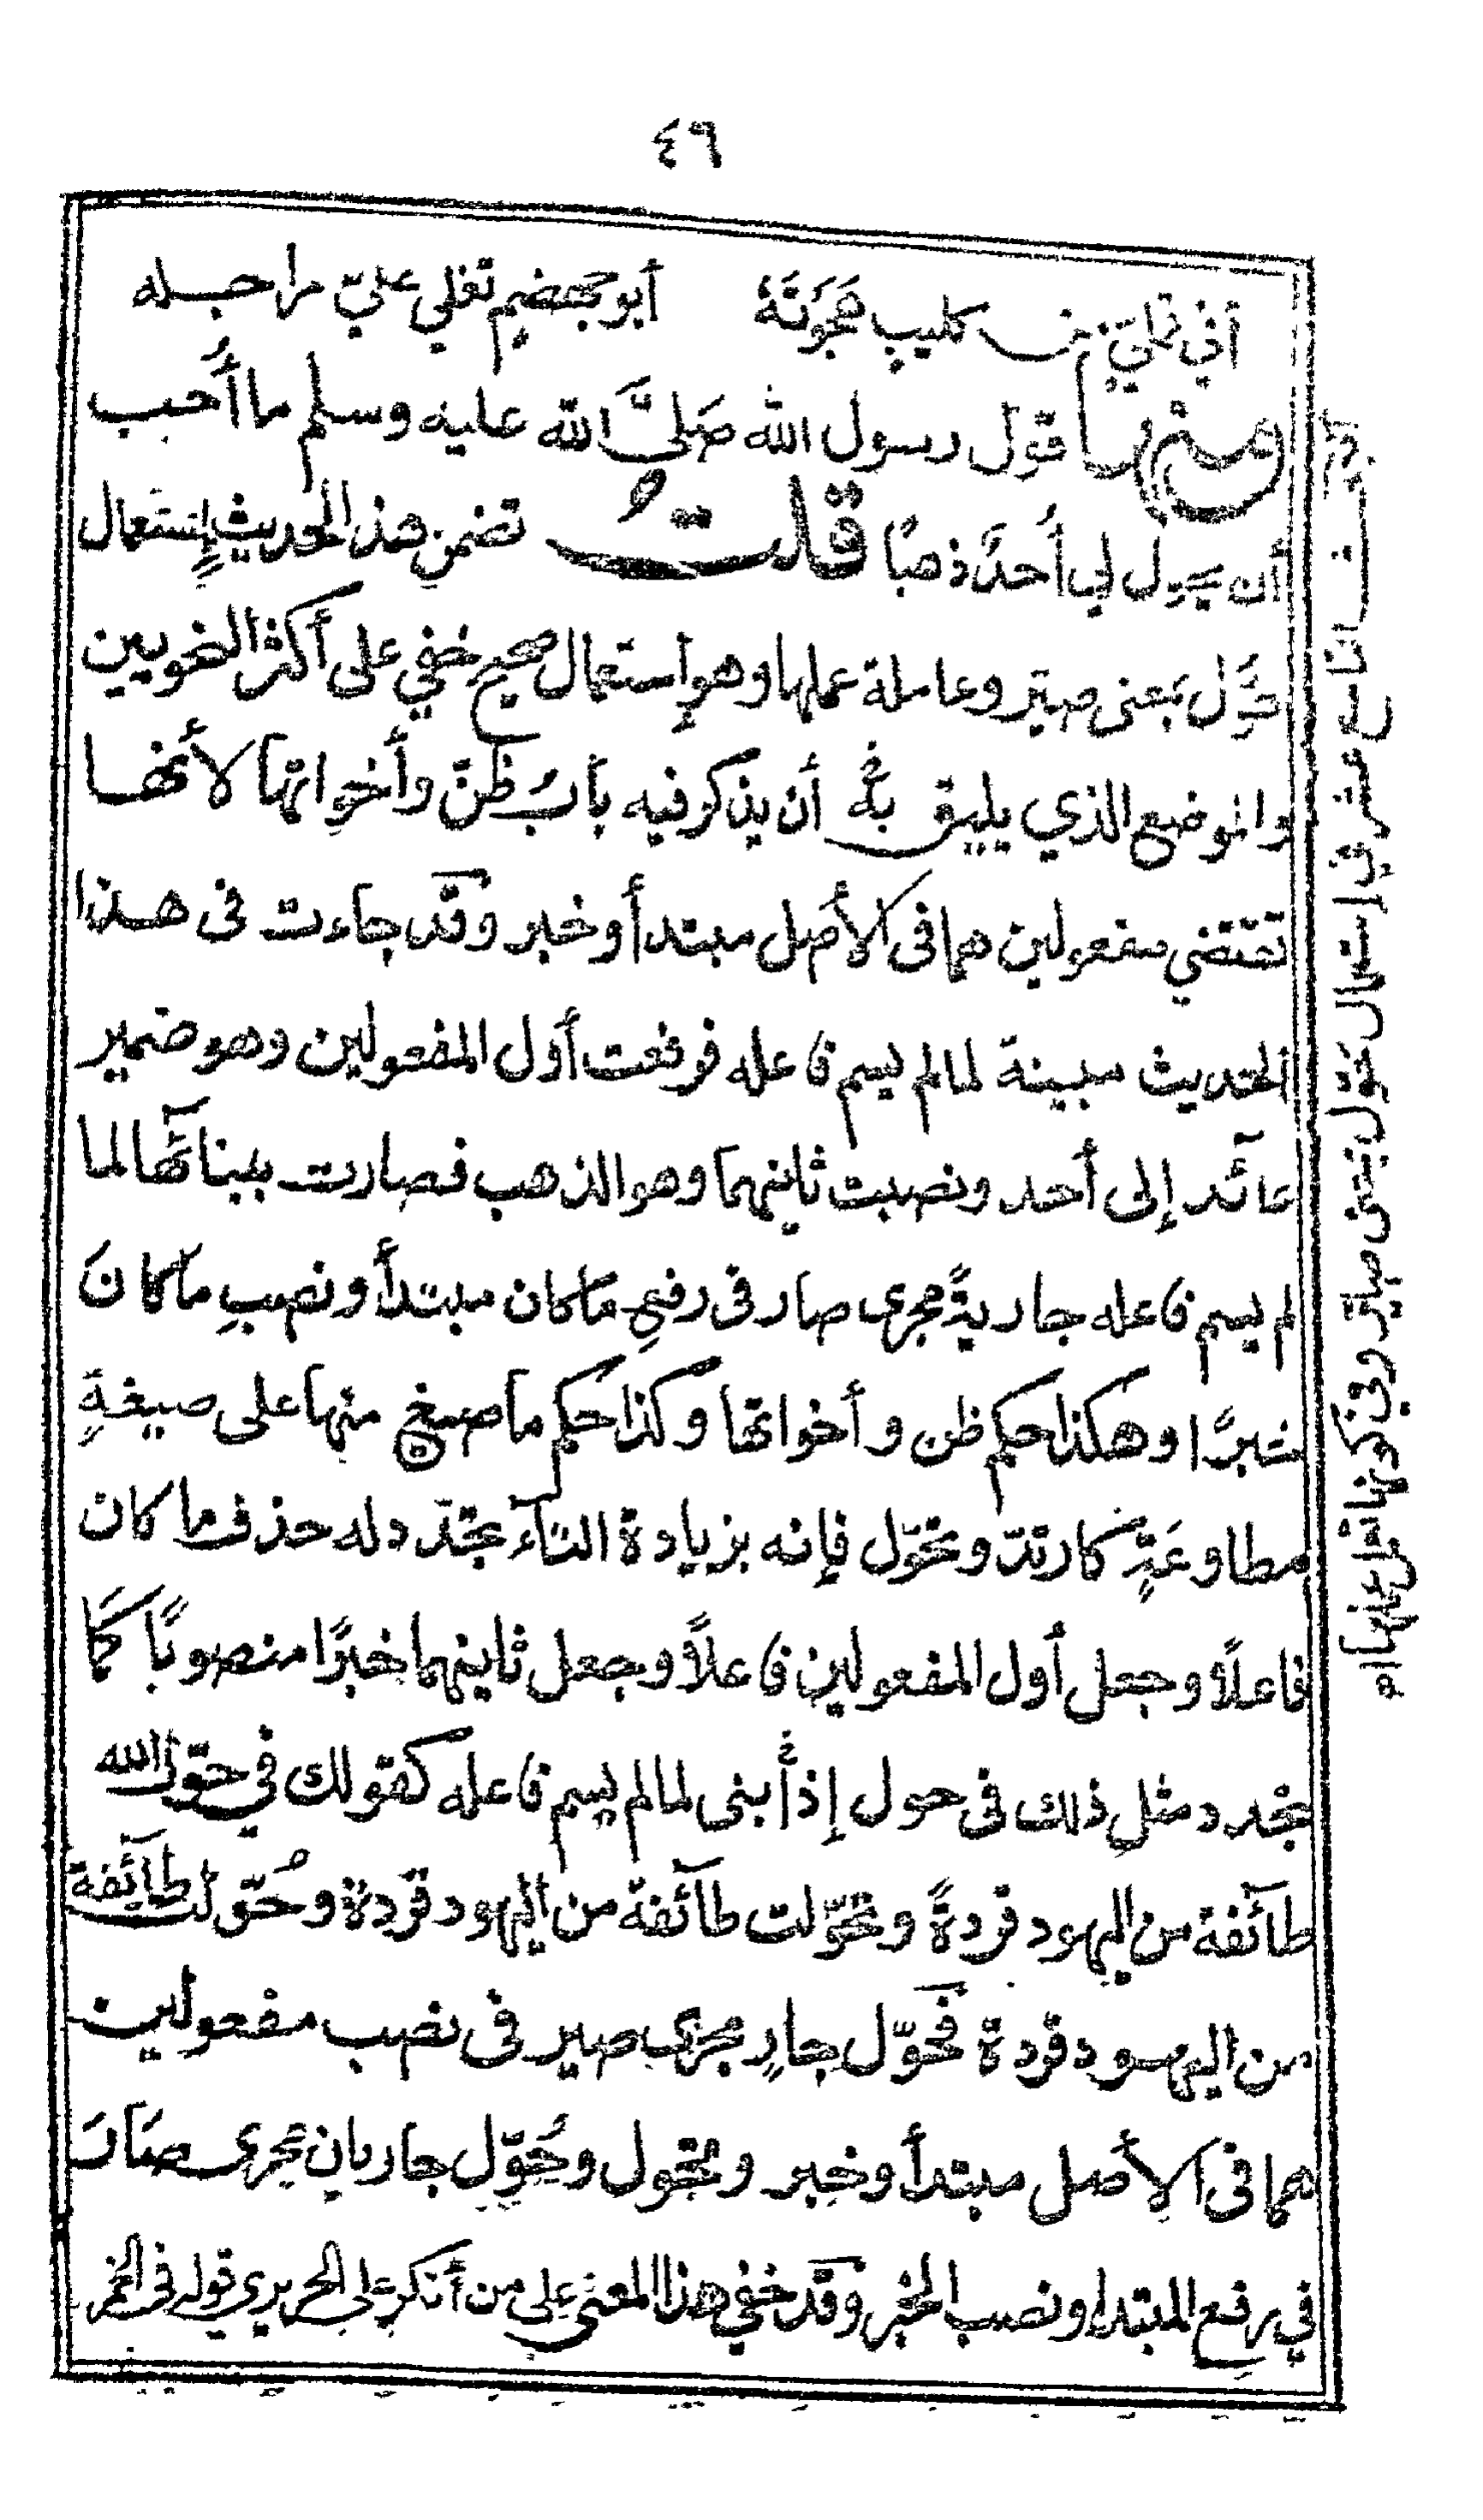 ٤٦
أفي تملّيّ من كليبٍ هَجَوتَهُ أبو جهضمٍ تغلي عليّ مراجله
ومنها قول رسول الله صَلىَّ الله عليه وسلم ما أُحب
أن يحول لي أُحدٌ ذهبًا قلت تضمن هذا الحديث إِستعمال
حَوَّل بمعنى صيّر وعاملة عملها وهو إستعمال صحيح خفي على أكثر النحويين
والموضع الذي يليق به أن يذكر فيه بابُ ظَنّ وأخواتها لأنها
تقتضي مفعولين هما فى الأصل مبتدأ وخبر وقد جاءت فى هذا
الحديث مبينة لما لم يسم فاعله فرفعت أول المفعولين وهو ضمير
عائد إلى أحد ونصبت ثانيهما وهو الذهب فصارت ببنائها لما
لم يسم فاعله جاريةً مجرى صار فى رفعِ ما كان مبتدأ ونصبِ ما كان
خبرًا وهكذا حكم ظن وأخواتها وكذا حُكم ما صيغ منها على صيغةِ
مطاوعَةٍ كارتدّ وتحوّل فإنه بزيادة التاء تجدّد له حذف ما كان
فاعلاً وجعل أول المفعولين فاعلاً وجعل ثانيهما خبرًا منصوبًا كما
تجدد مثل ذلك فى حول إذا بنى لما لم يسم فاعله كقولك في حوّل الله
طآئفة من اليهود قردةً وتحوّلت طآئفة من اليهود قردة وحُوّلت طآئفة
من اليهود قردة فحوّل جارٍ مجرى صير فى نصب مفعولين
هما فى الأصل مبتدأ وخبر وتحول وحُوّل جاريان مجرى صَارَ
في رفع المبتدإ ونصب الخبر وقد خفي هذا المعنى على من أنكر على الحريري قوله فى الخمر
استعمال حوّل بمعنى صيّر وفي كونها